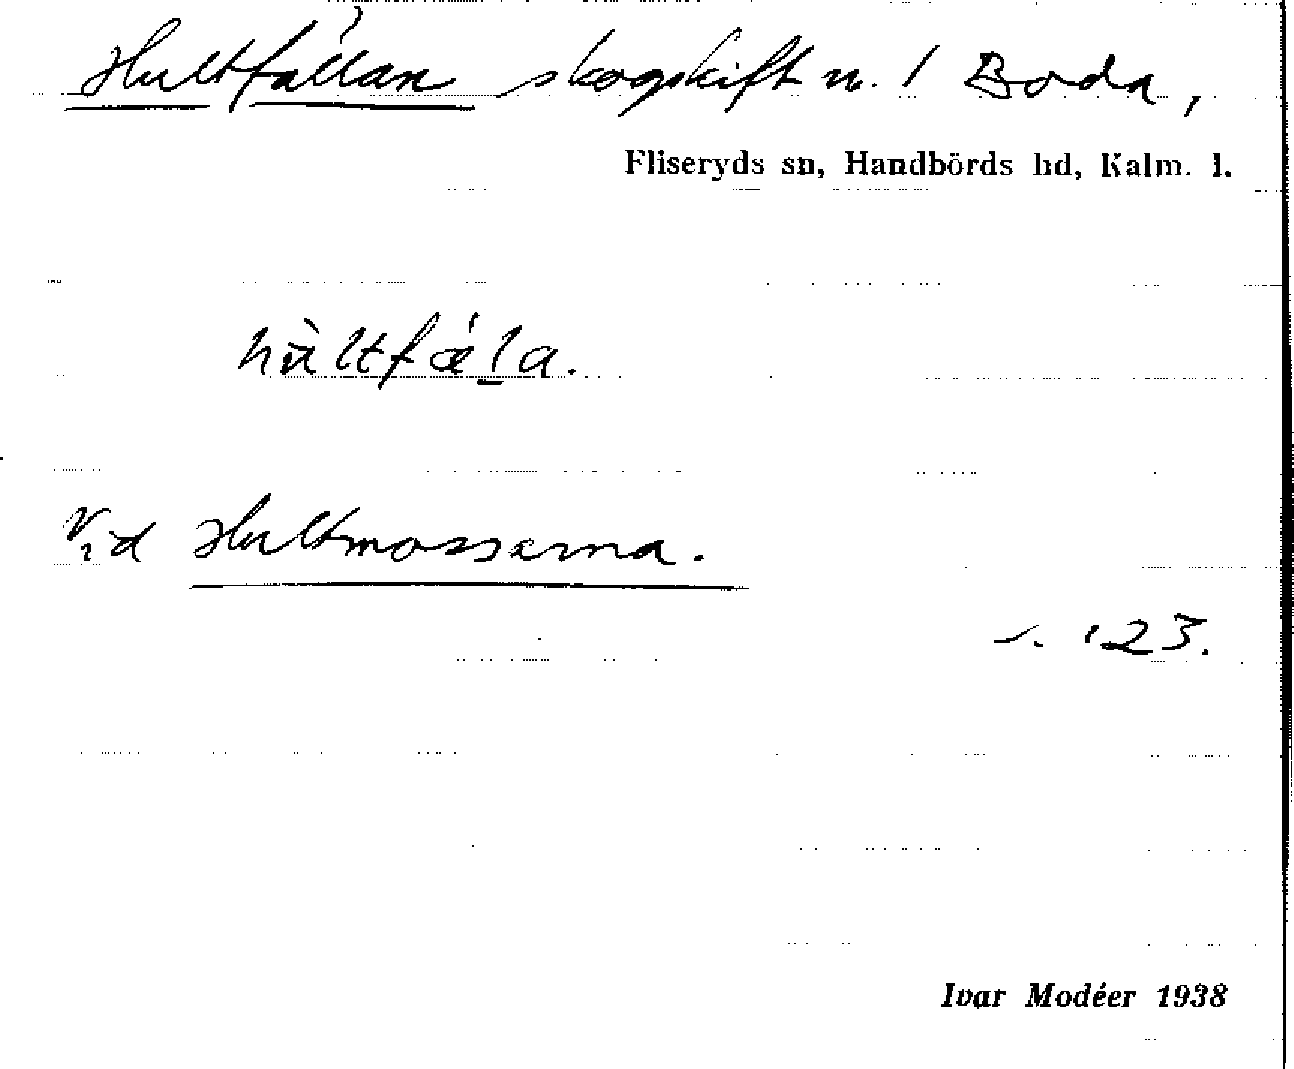 Hultfällan skogskift n. 1 Boda,
Fliseryds sn, Handbörds hd, Kalm. l.
hùltfǽla.
Vid Hultmosserna.
s. 123.
Ivar Modéer 1938